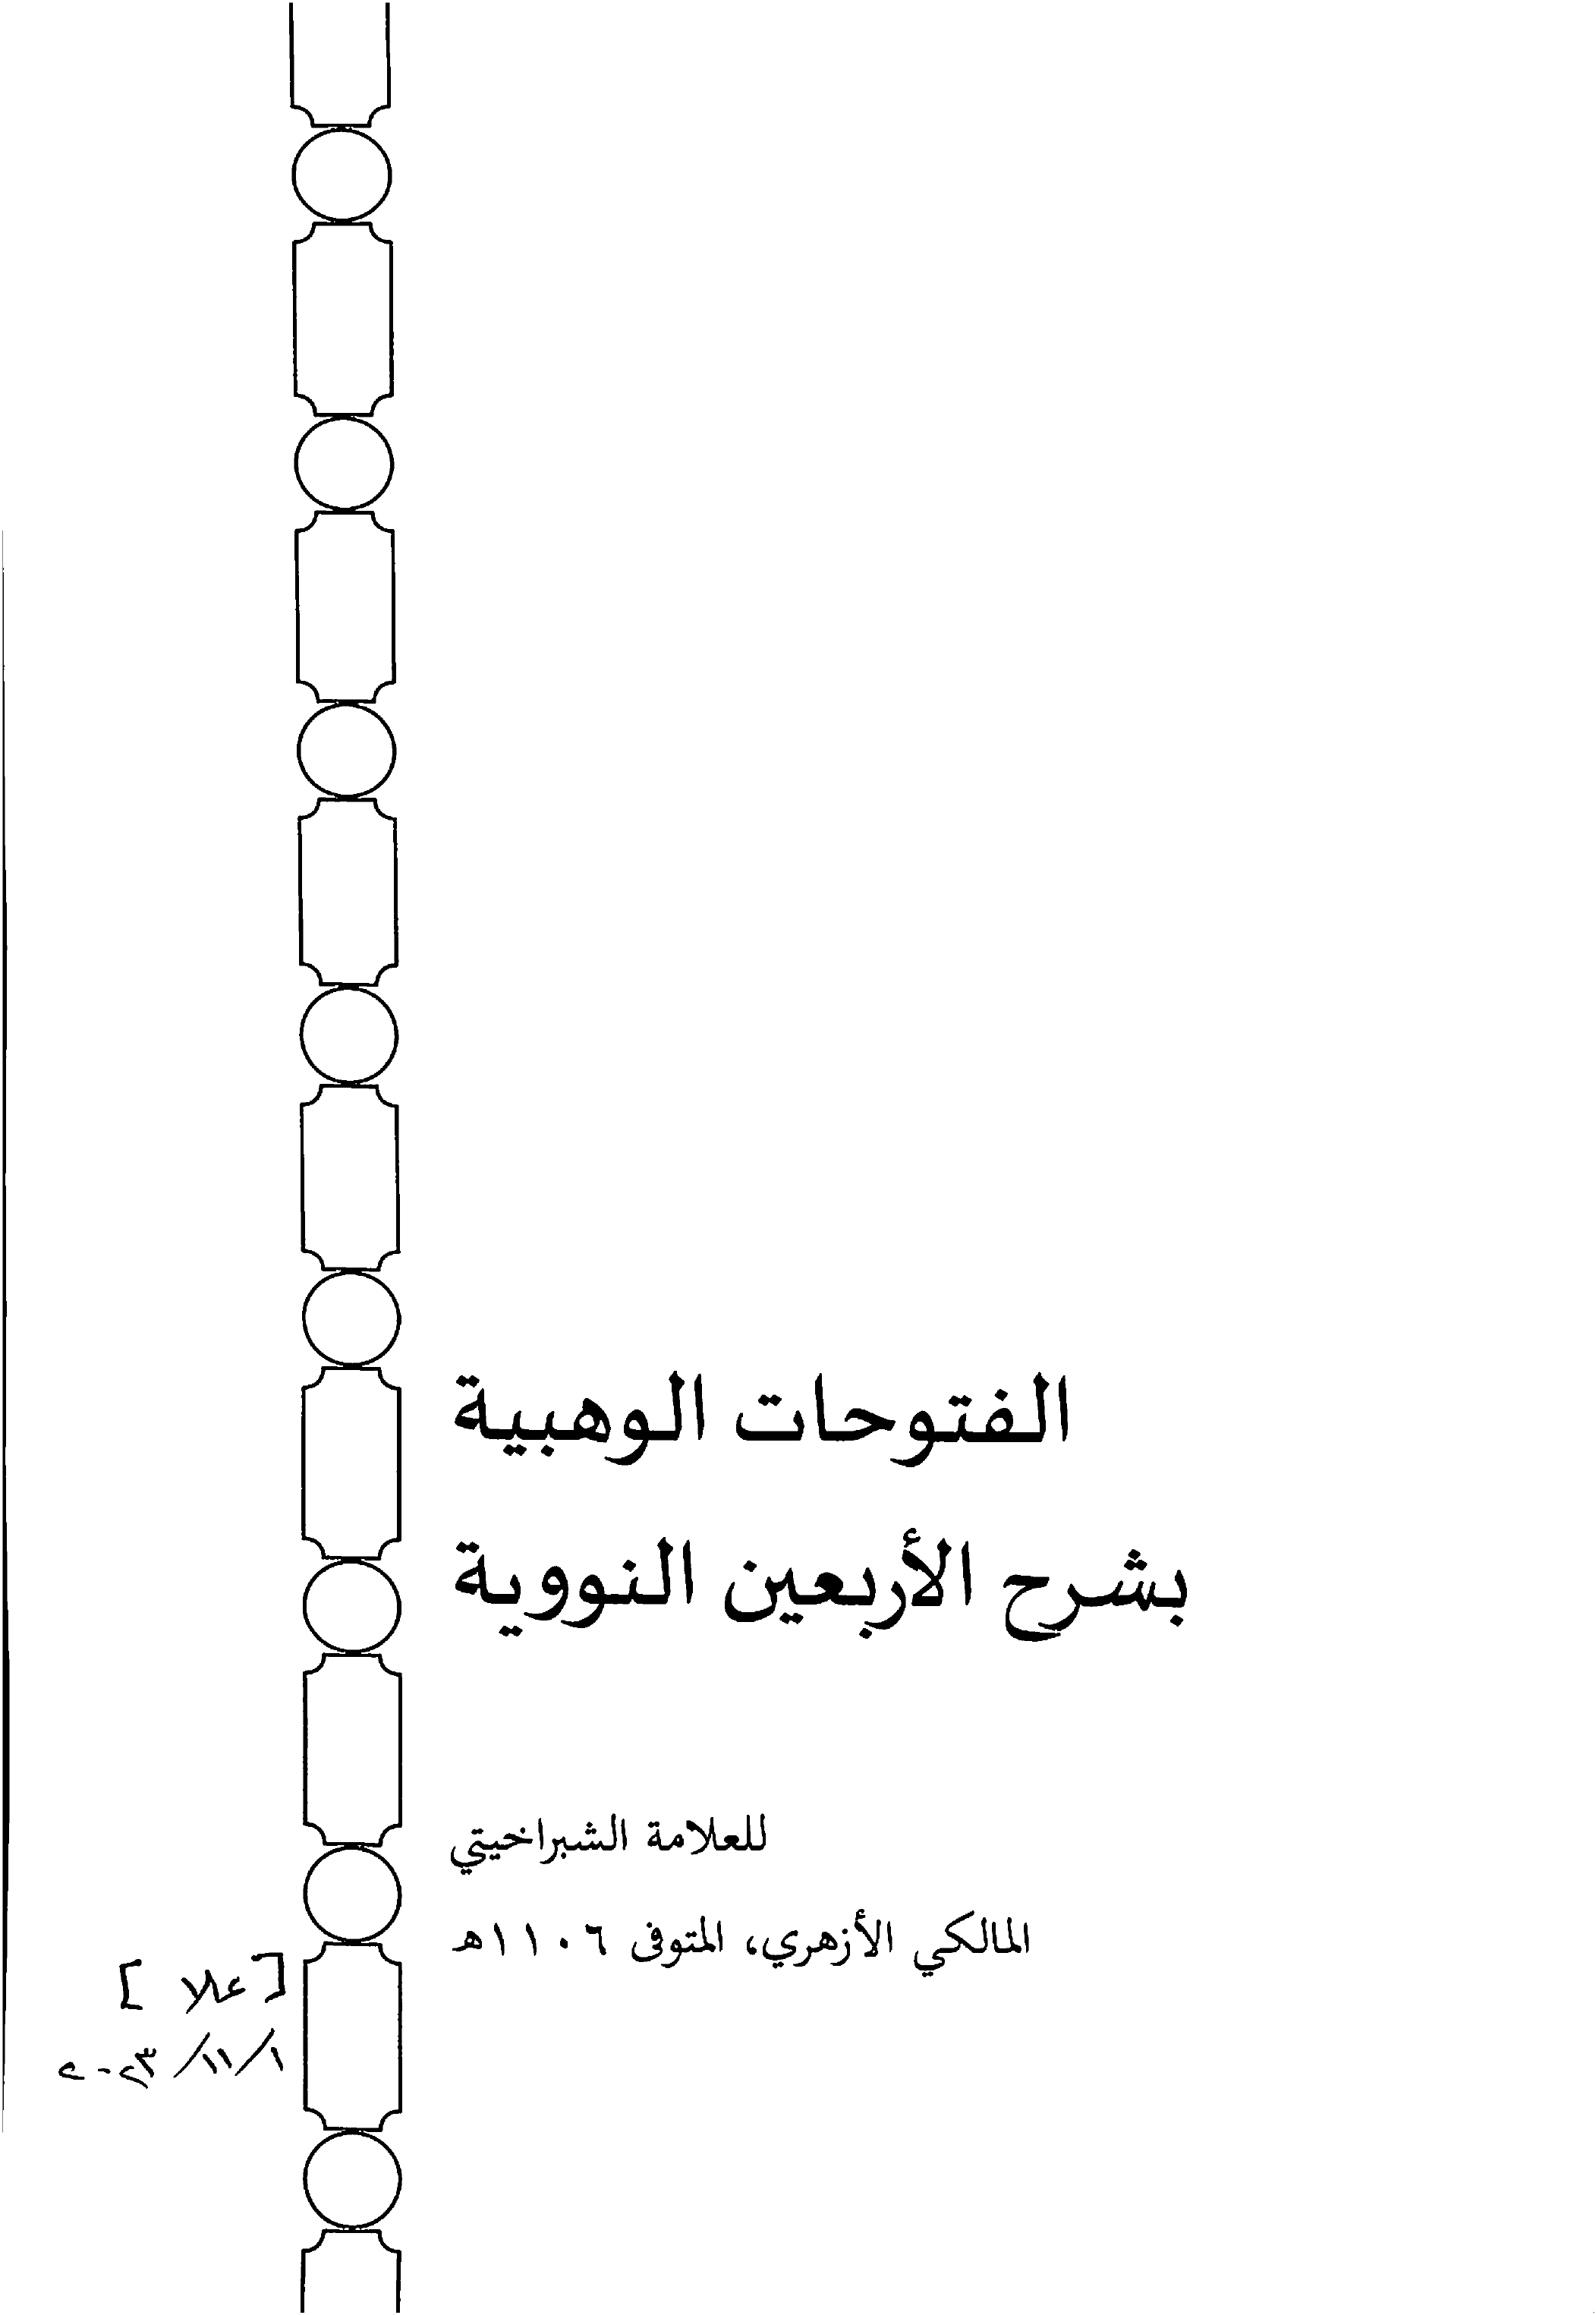 الفتوحات الوهبية
بشرح الأربعين النووية
للعلامة الشبراخيتي
المالكي الأزهري، المتوفى ١١٠٦هـ
[علا]
٢٠٢٣/١١/١